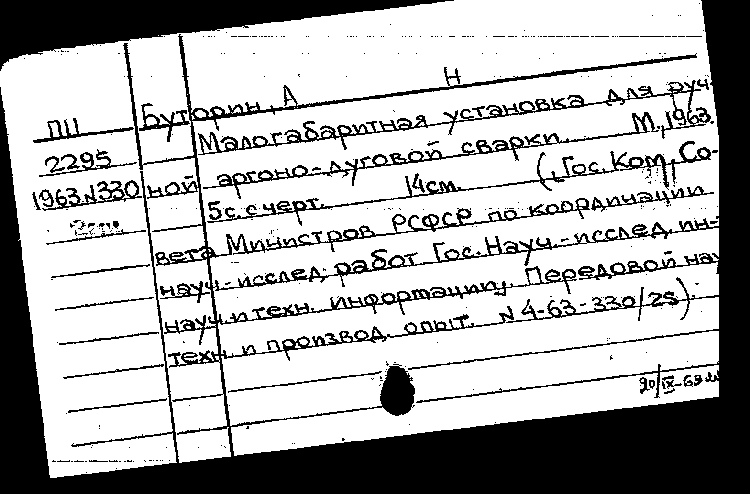 Н
Буторин, А
ПП
Малогабаритная установка для руч-
2295
ной аргоно-дуговой сварки. М., 1963.
1963.N330
5с. с черт. 14см. (Гос. Ком. Со-
вета Министров РСФСР по координации
науч.-исслед. работ Гос. Науч.-исслед. ин-
науч. и техн. информации. Передовой нау
техн. и производ. опыт. N 4-63-330/25).
20/IX-63